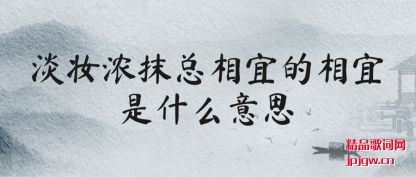 淡妆浓抹总相宜的相宜
是什么意思
精品歌词网
jpjgw.cn